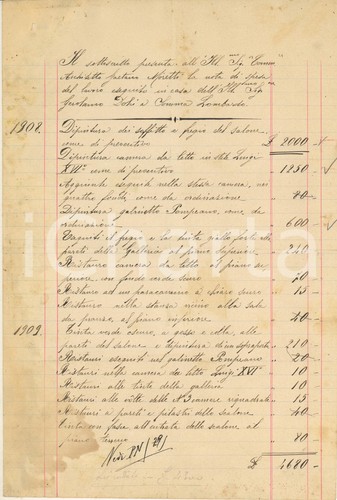 Il sottoscritto presenta all'Ill.mo Sig. Comm.
Architetto Gaetano Moretti la nota di spese
del lavoro eseguito in casa dell'Ill. Sig.
Girolamo a Somma Lombardo
1908. Dipintura dei soffitto e fregio del salone,
come di preventivo £ 2000
Dipintura camera da letto in stile Luigi
XVI° come di preventivo 1250
Aggiunte eseguite nella stessa camera, nei
quattro come da ordinazione 80
Dipintura gabinetto Pompeiano, come da
ordinazione 600
Eseguiti il fregio e la tinta alle
pareti della Galleria al piano inferiore 240
Ristauro camera da letto al piano
con fondo verde 20
ad un paracamino a chiaro scuro 15
Ristauro nella stanza vicino alla sala
da pranzo, al piano inferiore 40
1909. Tinta verde oscuro, a gesso e colla, alle
pareti del salone e dipintura 210
Ristauri eseguiti nel gabinetto Pompeiano 20
Ristauri nella camera da letto Luigi XVI° 10
Ristauri alle tinte della galleria 10
Ristauri alle volte delle N. 3 camere 15
Ristauri a pareti e pilastri delle salone 40
tinta con fascia all'entrata dello scalone al
piano terreno 80
£ 4680